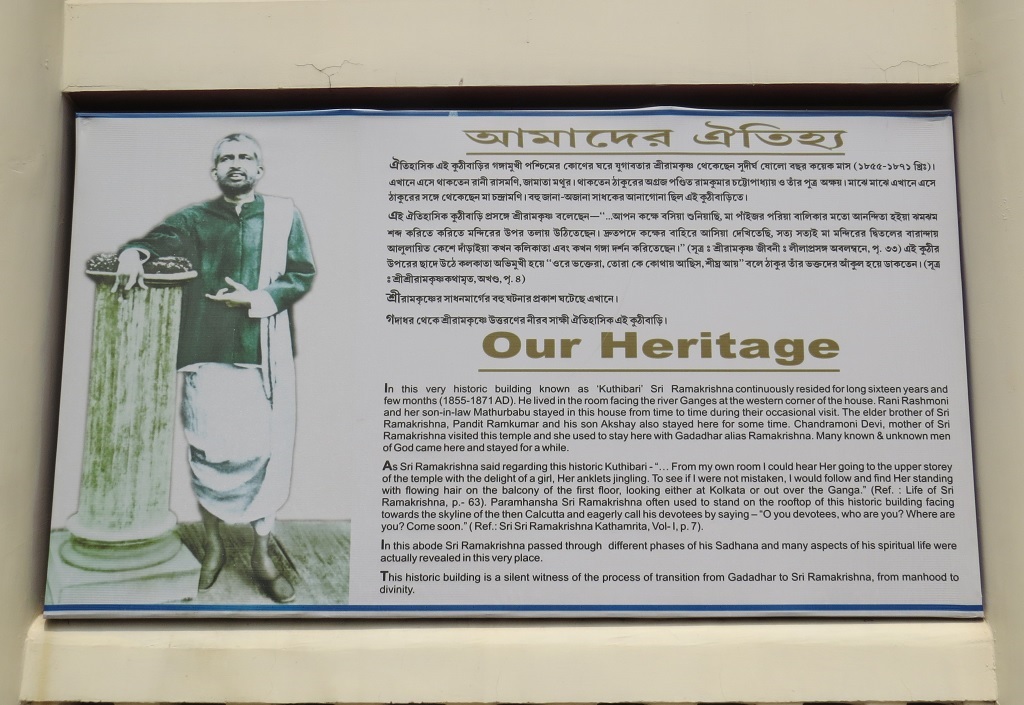 আমাদের ঐতিহ্য
ঐতিহাসিক এই কুঠীবাড়ির গঙ্গামুখী পশ্চিমের কোণের ঘরে যুগাবতার শ্রীরামকৃষ্ণ থেকেছেন সুদীর্ঘ ষোলো বছর কয়েক মাস (১৮৫৫-১৮৭১ খ্রিঃ)।
এখানে এসে থাকতেন রানী রাসমণি, জামাতা মথুর। থাকতেন ঠাকুরের অগ্রজ পণ্ডিত রামকুমার চট্টোপাধ্যায় ও তাঁর পুত্র অক্ষয়। মাঝে মাঝে এখানে এসে
ঠাকুরের সঙ্গে থেকেছেন মা চন্দ্রামণি। বহু জানা-অজানা সাধকের আনাগোনা ছিল এই কুঠীবাড়িতে।
এই ঐতিহাসিক কুঠীবাড়ি প্রসঙ্গে শ্রীরামকৃষ্ণ বলেছেন—"...আপন কক্ষে বসিয়া শুনিয়াছি, মা পাঁইজর পরিয়া বালিকার মতো আনন্দিতা হইয়া ঝমঝম
শব্দ করিতে করিতে মন্দিরের উপর তলায় উঠিতেছেন। দ্রুতপদে কক্ষের বাহিরে আসিয়া দেখিতেছি, সত্য সত্যই মা মন্দিরের দ্বিতলের বারান্দায়
আলুলায়িত কেশে দাঁড়াইয়া কখন কলিকাতা এবং কখন গঙ্গা দর্শন করিতেছেন।" (সূত্র ঃ শ্রীরামকৃষ্ণ জীবনী ঃ লীলাপ্রসঙ্গ অবলম্বনে, পৃ. ৩৩) এই কুঠীর
উপরের ছাদে উঠে কলকাতা অভিমুখী হয়ে "ওরে ভক্তেরা, তোরা কে কোথায় আছিস, শীঘ্র আয়" বলে ঠাকুর তাঁর ভক্তদের আঁকুল হয়ে ডাকতেন। (সূত্র
ঃ শ্রীশ্রীরামকৃষ্ণকথামৃত, অখণ্ড, পৃ. ৪)
শ্রীরামকৃষ্ণের সাধনমার্গের বহু ঘটনার প্রকাশ ঘটেছে এখানে।
গদাধর থেকে শ্রীরামকৃষ্ণে উত্তরণের নীরব সাক্ষী ঐতিহাসিক এই কুঠীবাড়ি।
Our Heritage
In this very historic building known as 'Kuthibari' Sri Ramakrishna continuously resided for long sixteen years and
few months (1855-1871 AD). He lived in the room facing the river Ganges at the western corner of the house. Rani Rashmoni
and her son-in-law Mathurbabu stayed in this house from time to time during their occasional visit. The elder brother of Sri
Ramakrishna, Pandit Ramkumar and his son Akshay also stayed here for some time. Chandramoni Devi, mother of Sri
Ramakrishna visited this temple and she used to stay here with Gadadhar alias Ramakrishna. Many known & unknown men
of God came here and stayed for a while.
As Sri Ramakrishna said regarding this historic Kuthibari - "... From my own room I could hear Her going to the upper storey
of the temple with the delight of a girl, Her anklets jingling. To see if I were not mistaken, I would follow and find Her standing
with flowing hair on the balcony of the first floor, looking either at Kolkata or out over the Ganga." (Ref. : Life of Sri
Ramakrishna, p.- 63). Paramhansha Sri Ramakrishna often used to stand on the rooftop of this historic building facing
towards the skyline of the then Calcutta and eagerly call his devotees by saying – "O you devotees, who are you? Where are
you? Come soon." ( Ref.: Sri Sri Ramakrishna Kathamrita, Vol- I, p. 7).
In this abode Sri Ramakrishna passed through different phases of his Sadhana and many aspects of his spiritual life were
actually revealed in this very place.
This historic building is a silent witness of the process of transition from Gadadhar to Sri Ramakrishna, from manhood to
divinity.